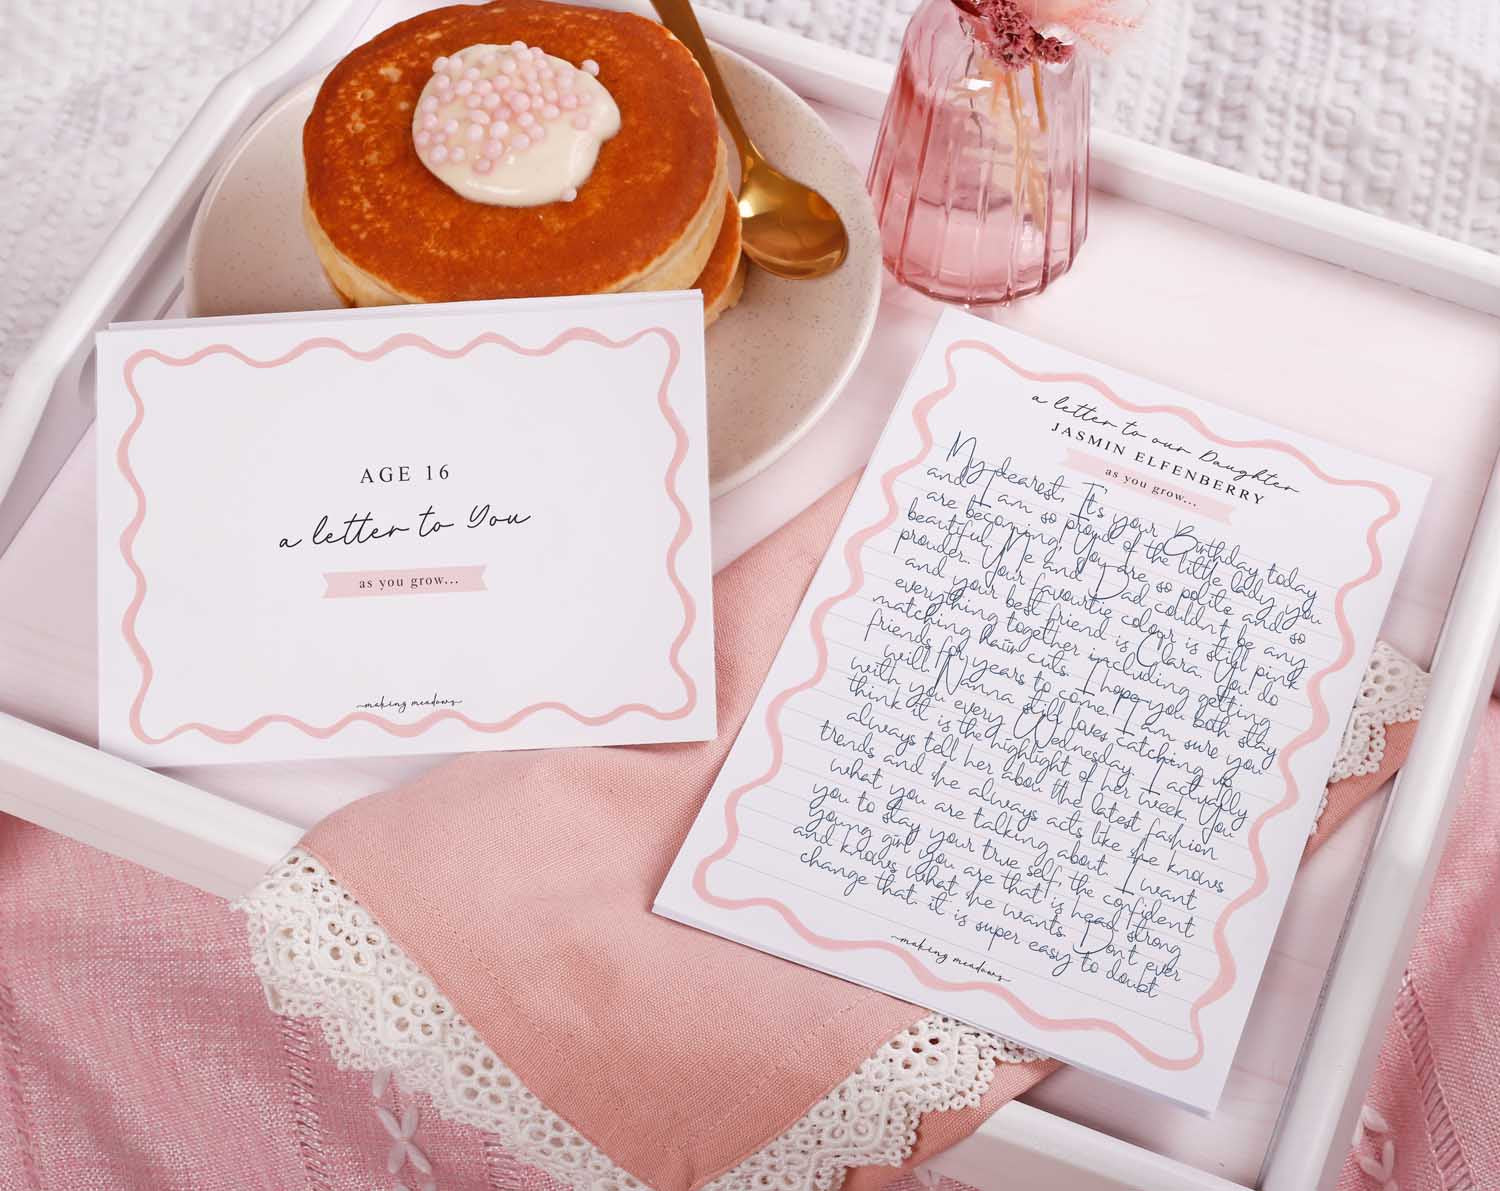 AGE 16
a letter to You
as you grow...
making meadows
a letter to our Daughter
JASMIN ELFENBERRY
as you grow...
My dearest, It's your Birthday today
and I am so proud of the little lady you
are becoming, You are so polite and so
beautiful, Me and Dad couldn't be any
prouder. Your favourtie colour is still pink
and your best friend is Clara. You do
everything together including getting
matching hair cuts. I hope you both stay
friends for years to come. I am sure you
will. Nanna still loves catching up
with you every Wednesday. I actually
think it is the highlight of her week. You
always tell her about the latest fashion
trends and she always acts like she knows
what you are talking about. I want
you to stay your true self, the confident
young girl you are that is head strong
and knows what she wants. Don't ever
change that. it is super easy to doubt
making meadows